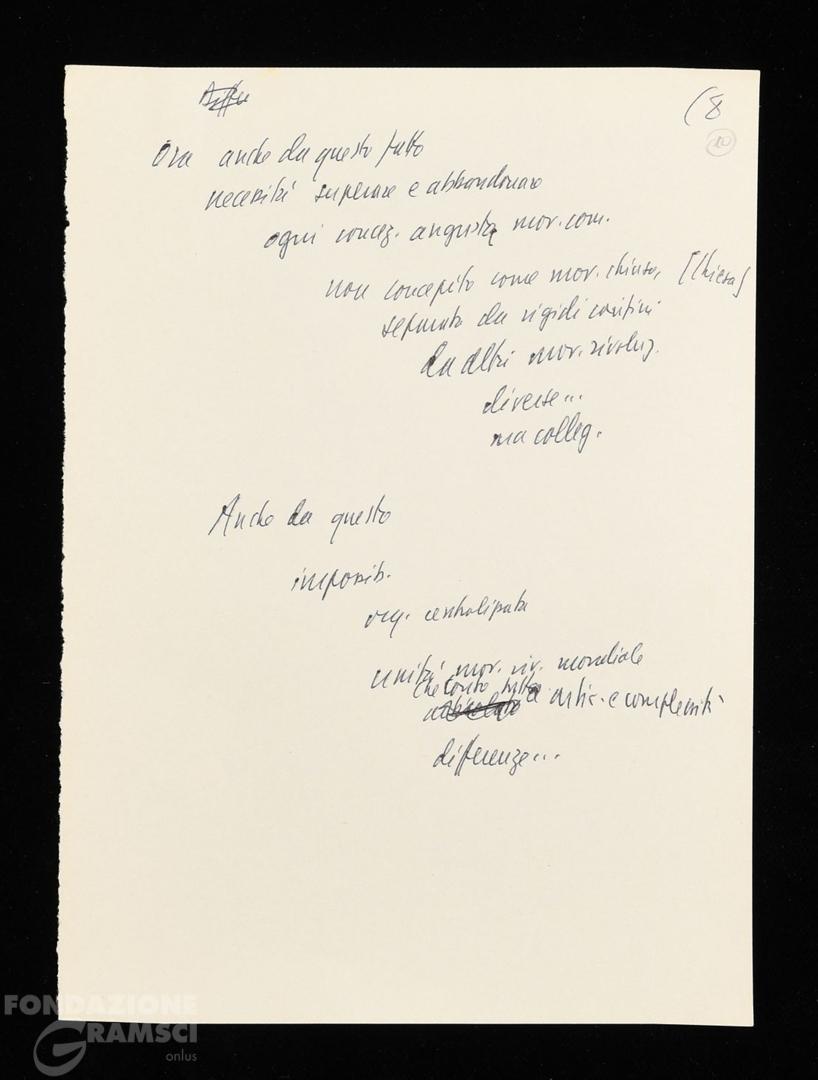 (8
10
Ora anche da questo fatto
necessità superare e abbandonare
ogni concez. angusta mov. com.
non concepito come mov. chiuso, [Chiesa]
separato da rigidi confini
da altri mov. rivoluz.
diverse...
ma colleg.
Anche da questo
impossib.
org. centralizzata
unità mov. riv. mondiale
che conto tutta
artic. e complessità
differenze...
FONDAZIONE
GRAMSCI
onlus